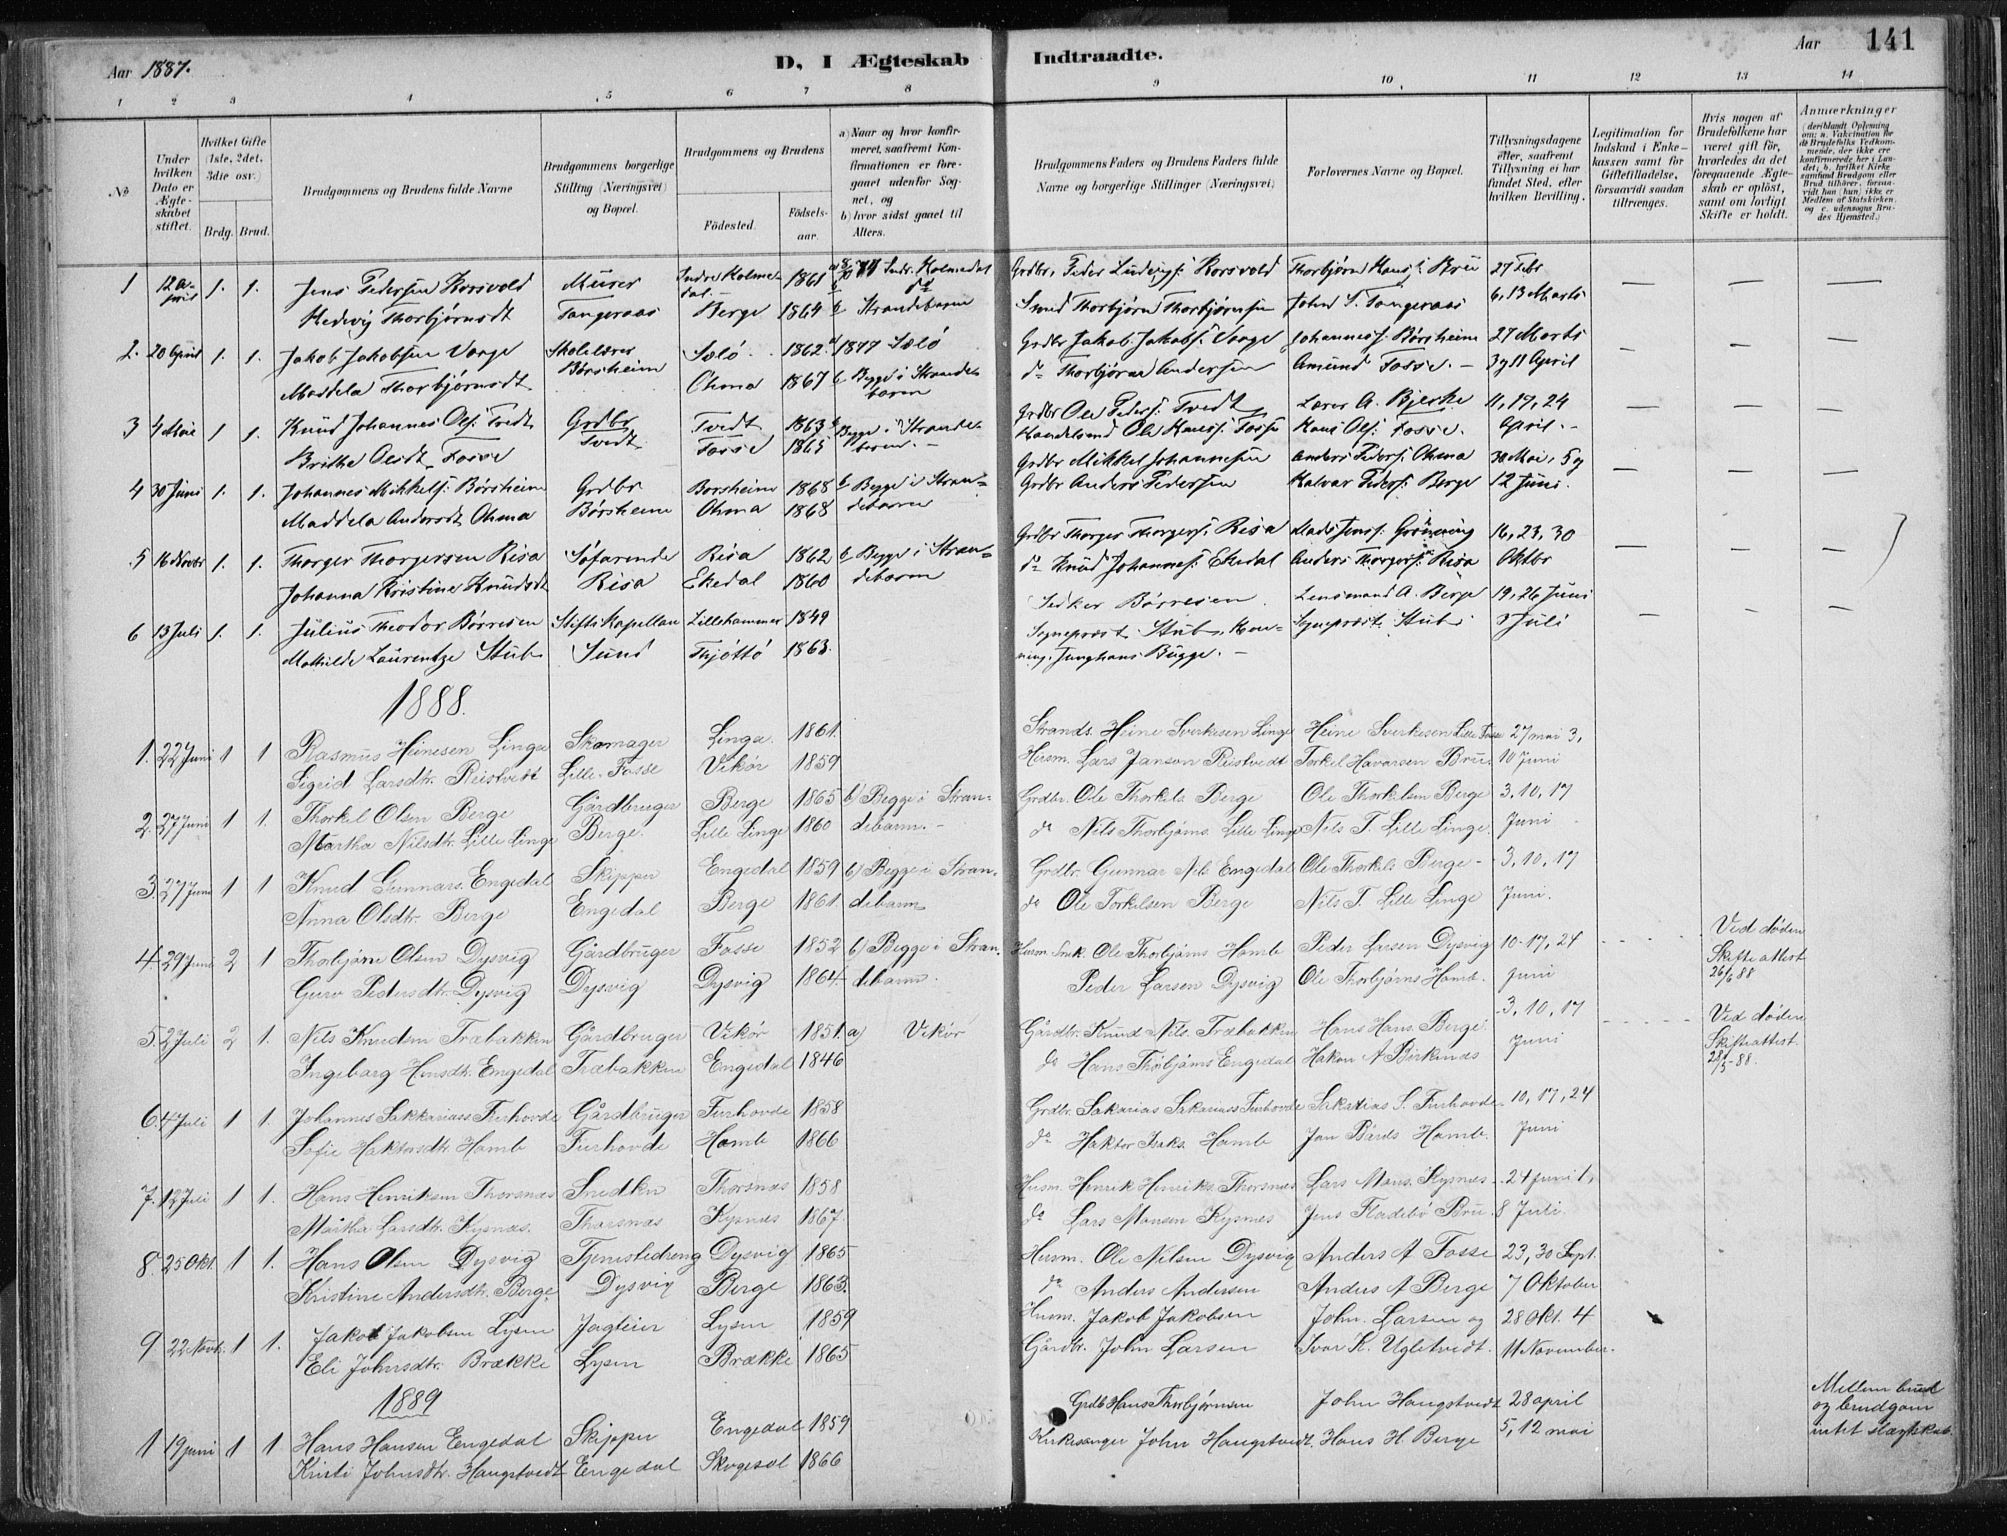 Aar 1887.
D, I Ægteskab Indtraadte.
Aar 141
1 2 3 4 5 6 7 8 9 10 11 12 13 14
No
Under hvilken Dato er Ægteskabet stiftet.
Hvilket Gifte (1ste, 2det, 3die osv.)
Brdg. Brud.
Brudgommens og Brudens fulde Navne
Brudgommens borgerlige Stilling (Næringsvei) og Bopæl.
Brudgommens og Brudens
Fødested. Fødsels-aar.
a) Naar og hvor konfirmeret, saafremt Konfirmationen er foregaaet udenfor Sognet, og b) hvor sidst gaaet til Alters.
Brudgommens Faders og Brudens Faders fulde Navne og borgerlige Stillinger (Næringsvei)
Forlovernes Navne og Bopæl.
Tillysningsdagene eller, saafremt Tillysning ei har fundet Sted, efter hvilken Bevilling.
Legitimation for Indskud i Enkekassen samt for Giftetilladelse, forsaavidt saadan tiltrænges.
Hvis nogen af Brudefolkene har været gift før, hvorledes da det foregaaende Ægteskab er opløst, samt om lovligt Skifte er holdt.
Anmærkninger (deriblandt Oplysning om: a. Vakcination for de Brudefolks Vedkommende, der ikke ere konfirmerede her i Landet; b. hvilket Kirkesamfund Brudgom eller Brud tilhører, forsaavidt han (hun) ikke er Medlem af Statskirken, og c. udensogns Brudes Hjemsted.)
1 12 April 1. 1. Jens Pedersen Korsvold Murer Indre Holmedal. 1861 77 Indr. Holmedal Grdbr. Peder Ludvigs: Korsvold Thorbjørn Hans: Bru 27 Febr — — —
Hedevig Thorbjørnsdt Tangeraas Berge 1864 b Strandebarm Smed Thorbjørn Thorbjørnsen John S. Tangeraas 6, 13 Marts
2. 20 April 1. 1. Jakob Jakobsen Vage Skolelærer Sælø 1862 a 1877 Sælø Grdbr Jakob Jakobs: Vage Johannes: Børsheim 27 Marts - — —
Maddela Thorbjørnsdt Børsheim Ohma 1867 b Begge i Strandebarm do Thorbjørn Andersen Amund Fosse. — 3 g 11 April
3 4 Mai 1 1. Knud Johannes Ols: Tvedt Grdbr Tvedt 1863 b Begge i Strandebarm. — Grdbr Ole Peders: Tvedt Lærer A. Bjerke 11, 17, 24 — — —
Brithe Olsdt Fosse Tvedt Fosse 1865 Handelsmd Ole Hans: Fosse Hans Ols: Fosse. April. -
4 30 Juni 1. 1. Johannes Mikkels: Børsheim Grdbr Borsheim 1868 b Begge i Strandebarm Grdbr Mikkel Johannesen Anders Peders: Ohma 30 Mai, 5 og — — —
Maddela Andersdt Ohma Børsheim Ohma 1868 Grdbr Anders Pedersen Halvar Peders: Berge 12 Juni.
5 16 Novbr 1. 1. Thorger Thorgersen Risa Søfarende Risa 1862 b Begge i Strandebarm Grdbr Thorger Thorgers: Risa Mads Jens: Grønning 16, 23, 30 — — —
Johanna Kristine Knudsdt Risa Ekedal 1860 do Knud Johannes: Ekedal Anders Thorgers: Risa Oktbr
6 13 Juli 1. 1. Julius Theodor Børresen Stiftskapellan Lillehammer 1849 Børresen Lensmand A. Berge 19, 26 Juni — - —
Mathilde Laurentze Stub Sund Thjøttø 1863. Sogneprest Stub, Henning Junghans Bugge. — Sogneprest Stub 3 Juli
1888.
1. 22 Juni 1 1 Rasmus Heinesen Linga Skomager Linga. 1861. Strands. Heine Sverkesen Linge Heine Sverkesen Lille Fosse 27 mai 3,
Sigrid Larsdtr. Reistvedt Lille-Fosse Vikør 1859 Husm. Lars Janson Reistvedt Torkel Havarsen Bru. 10 Juni
2. 27 Juni 1 1. Thorkel Olsen Berge Gårdbruger Berge 1865 b) Begge i Strandebarm. - Grdbr. Ole Thorkels. Berge Ole Thorkelsen Berge 3. 10, 17
Martha Nilsdtr. Lille Linge Berge. Lille Linge 1860 do Nils Thorbjørns. Lille Linge Nils T. Lille Linge. Juni
3. 27 Juni 1 1 Knud Gunnars. Engedal Skipper Engedal 1859 b) Begge i Strandebarm Grdbr. Gunnar Nils Engedal Ole Thorkels Berge - 3, 10, 17
Anna Olsdtr. Berge Engedal Berge 1861. do Ole Torkelsen Berge Nils T. Lille Linge Juni.
4. 29 Juni 2 1 Thorbjørn Olsen Dysvig Gårdbruger Fosse 1852 b) Begge i Strandebarm. Husm. Ole Thorbjørns Hamb Peder Larsen Dysvig 10-17, 24 Ved døden
Guro Pedersdtr. Dysvig Dysvig Dysvig 1864 Peder Larsen Dysvig Ole Thorbjørns Hamb. Juni Skifteattest 26/6 88
5. 2 Juli 2 1. Nils Knudsen Træbakken Gårdbruger Vikør 1851. a) Vikør Gårdbr. Knud Nils. Træbakken Hans Hans. Berge. 3, 10, 17 Ved døden
Ingeborg Hansdtr. Engedal Træbakken Engedal 1846 do Hans Thorbjørns Engedal Hakon A Birkenæs Juni Skifteattest. 28/5-88.
6. 4 Juli 1 1. Johannes Sakkariass Furhovde Gårdbruger Furhovde 1858 Grdbr. Sakarias Sakariass Furhovde Sakarias S. Furhovde 10, 17, 24
Sofie Haktorsdtr Hamb Furhovde Hamb 1866 do Haktor Isaks. Hamb Jan Bårds Hamb. Juni
7. 12 Juli 1 1. Hans Henriksen Thorsnæs Snedker Thorsnæs 1858 Husm. Henrik Henriks. Thorsnæs Lars Mons. Kysnæs - 24 Juni 1,
Martha Larsdtr. Kysnæs. Thorsnæs Kysnæs 1867. do Lars Monsen Kysnæs Jens Fladebø Bru. 8 Juli.
8. 25 Okt. 1 1. Hans Olsen Dysvig Tjenestedreng Dysvig 1865 Husm. Ole Nilsen Dysvig Anders A Fosse 23, 30 Sept.
Kristine Andersdtr. Berge. Dysvig Berge 1863. do Anders Andersen Anders A Berge 7 Oktober
9 22 Novb. 1 1. Jakob Jakobsen Lysen Jagteier Lysen 1859 Husm. Jakob Jakobsen John. Larsen og 28 Okt. 4
Eli Johnsdtr. Brække Lysen Brække 1865 Gårdbr. John Larsen Ivar K. Ugletvedt. 11 November.
1889
1 19 juni 1 1. Hans Hansen Engedal Skipper Engedal 1859 Grdb Hans Thorbjørnsen John Haugstvedt 28 april Mellem brud og brudgom intet slægtskab.
Kristi Johnsdtr. Haugstvedt Engedal Skogesal 1866 Kirkesanger John Haugstvedt. Hans H. Berge 5, 12 mai